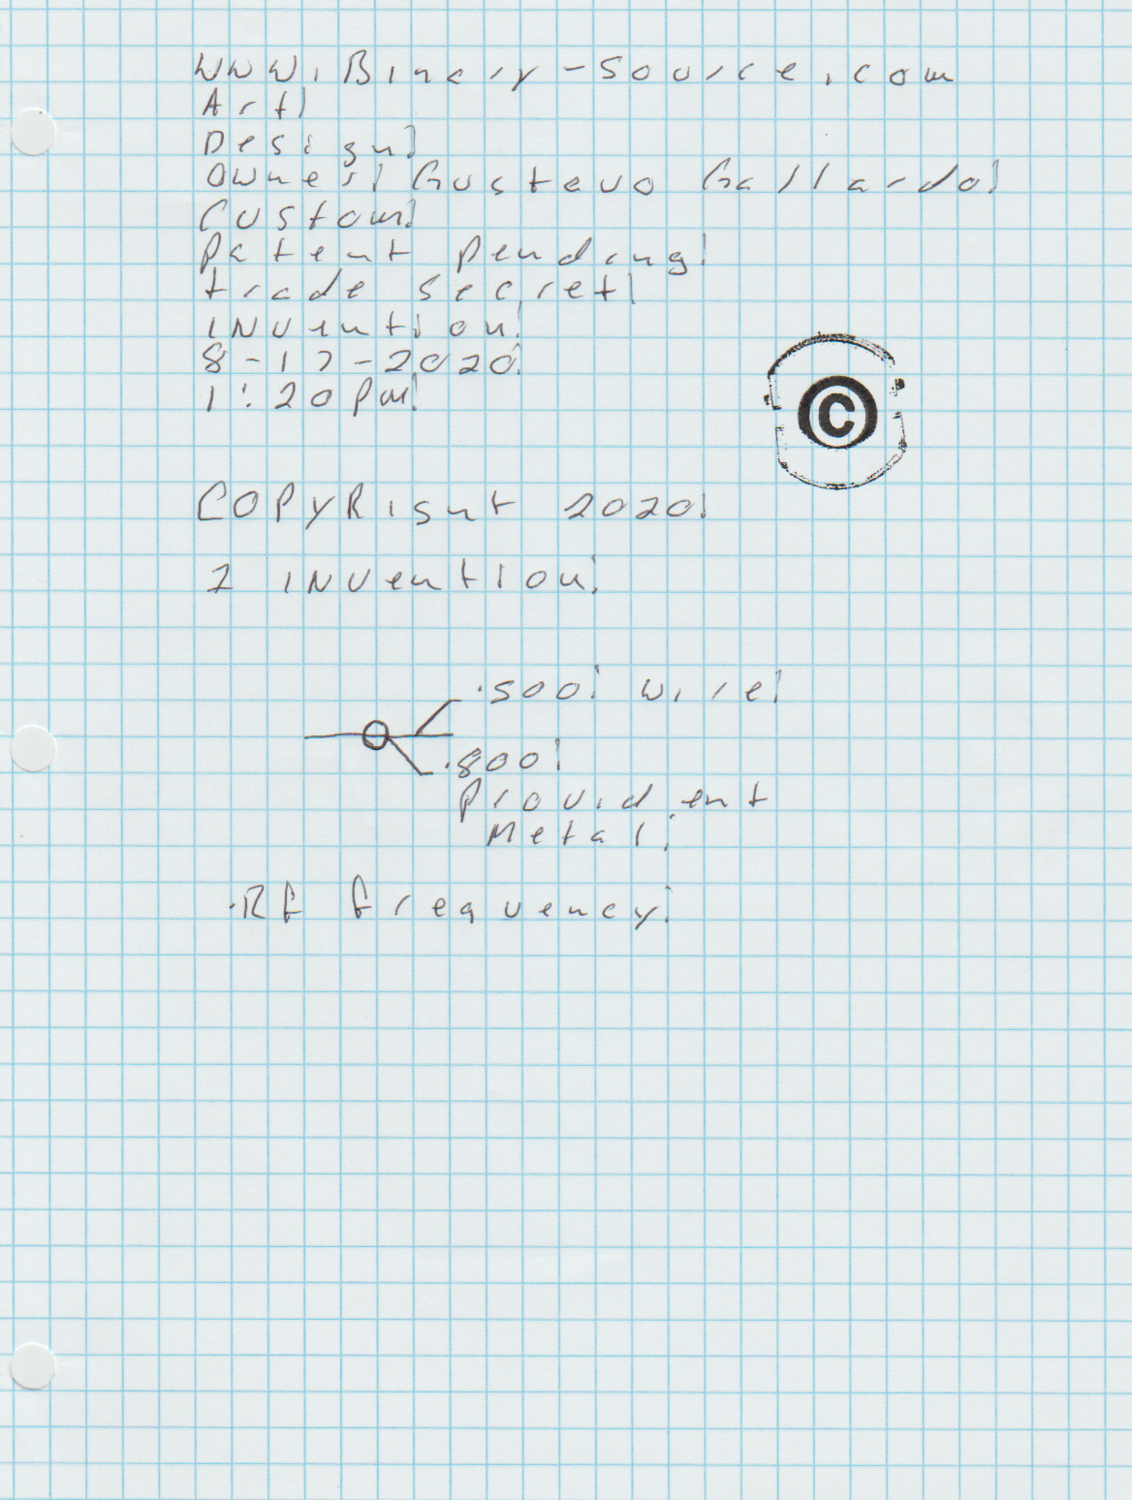 www.Binary-source.com
Art!
Design!
Owner! Gustavo Gallardo!
Custom!
Patent pending!
trade secret!
INVention!
8-17-2020!
1:20 pm!
©
COPYRight 2020!
2 INVention!
.500! wire!
.800!
Provident
Metal!
.RF frequency!